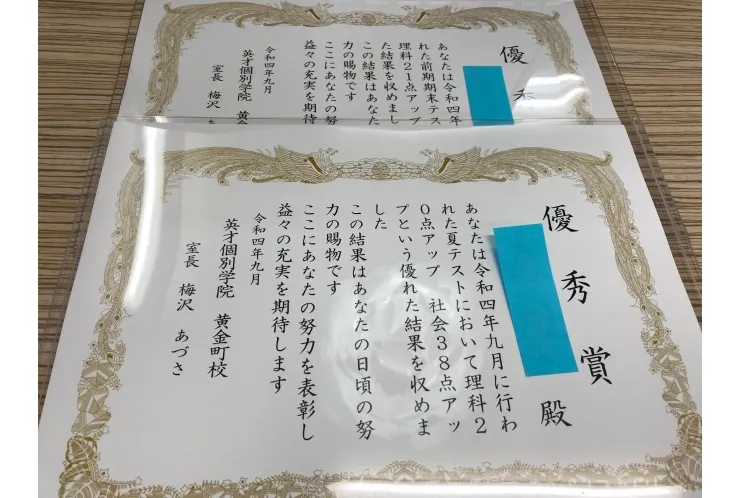 優秀
あなたは令和四年
れた前期期末テス
理科21点アップ
た結果を収めまし
この結果はあなた
力の賜物です
ここにあなたの努
益々の充実を期待
令和四年九月
英才個別学院 黄金
室長 梅沢
優秀賞
殿
あなたは令和四年九月に行わ
れた夏テストにおいて理科2
0点アップ 社会38点アッ
プという優れた結果を収めま
した
この結果はあなたの日頃の努
力の賜物です
ここにあなたの努力を表彰し
益々の充実を期待します
令和四年九月
英才個別学院 黄金町校
室長 梅沢 あづさ